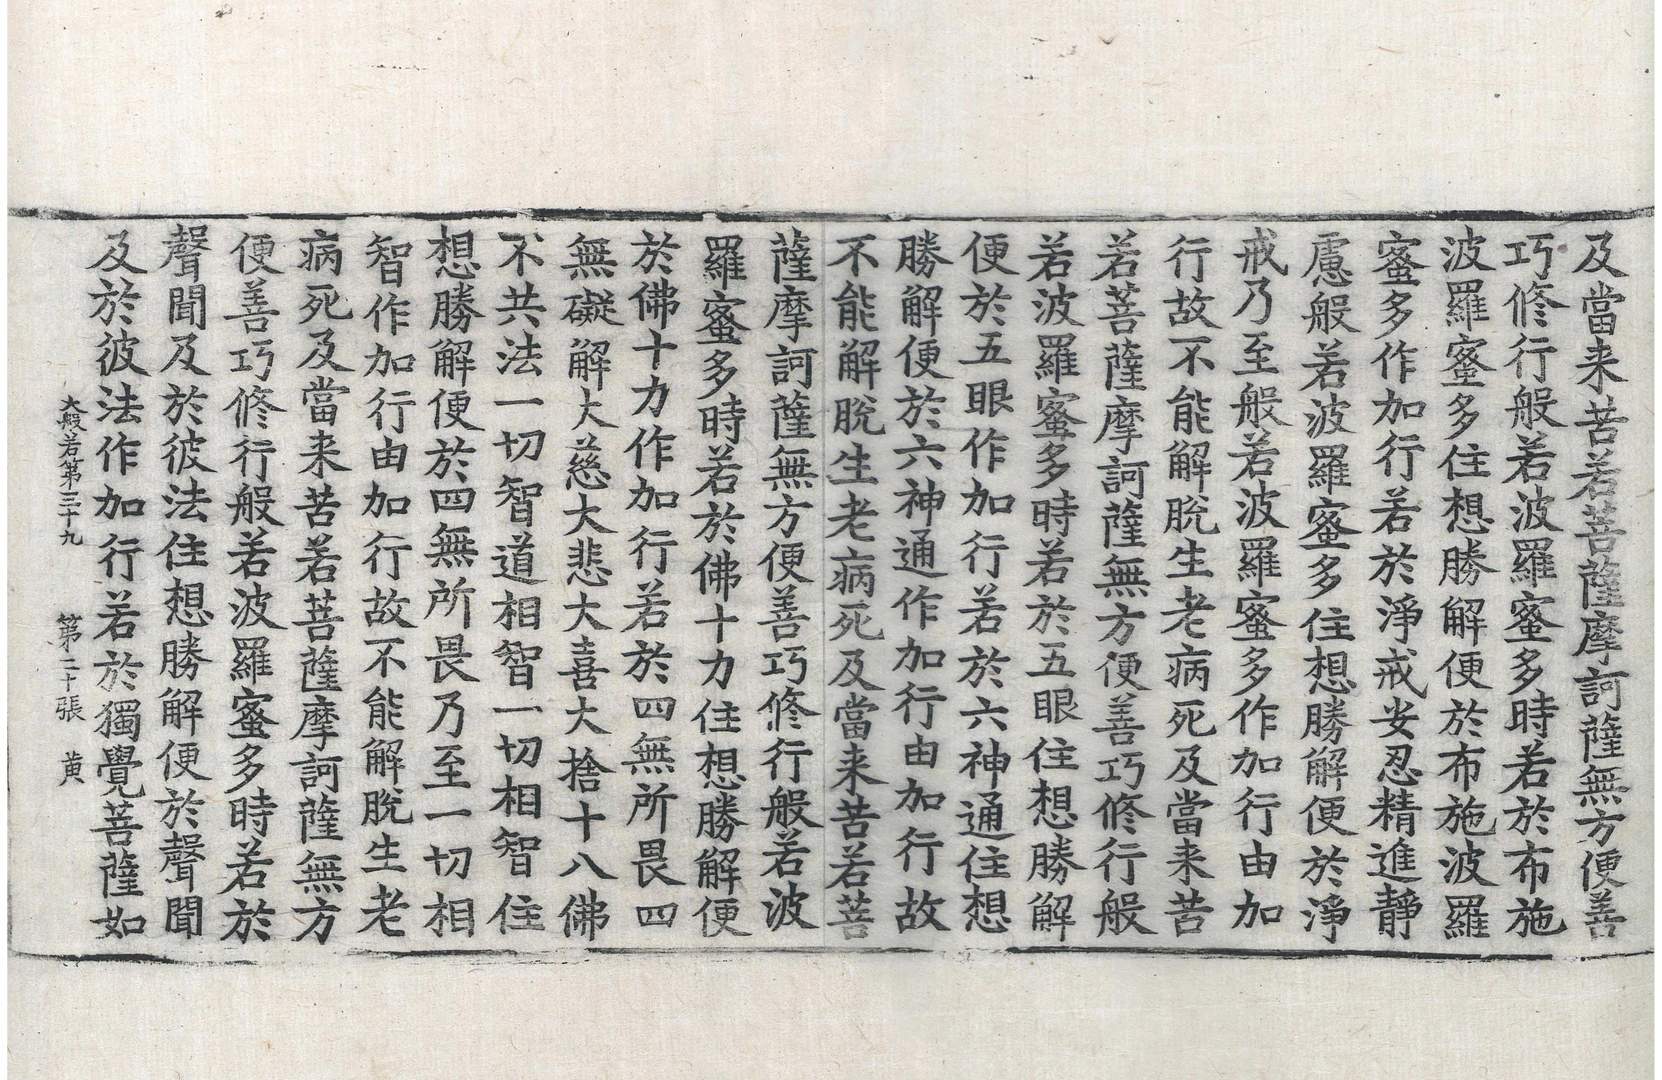 及當来苦若菩薩摩訶薩無方便善
巧修行般若波羅蜜多時若於布施
波羅蜜多住想勝解便於布施波羅
蜜多作加行若於淨戒安忍精進靜
慮般若波羅蜜多住想勝解便於淨
戒乃至般若波羅蜜多作加行由加
行故不能解脫生老病死及當来苦
若菩薩摩訶薩無方便善巧修行般
若波羅蜜多時若於五眼住想勝解
便於五眼作加行若於六神通住想
勝解便於六神通作加行由加行故
不能解脫生老病死及當来苦若菩
薩摩訶薩無方便善巧修行般若波
羅蜜多時若於佛十力住想勝解便
於佛十力作加行若於四無所畏四
無礙解大慈大悲大喜大捨十八佛
不共法一切智道相智一切相智住
想勝解便於四無所畏乃至一切相
智作加行由加行故不能解脫生老
病死及當来苦若菩薩摩訶薩無方
便善巧修行般若波羅蜜多時若於
聲聞及於彼法住想勝解便於聲聞
及於彼法作加行若於獨覺菩薩如
大般若第三十九　第二十張　黄